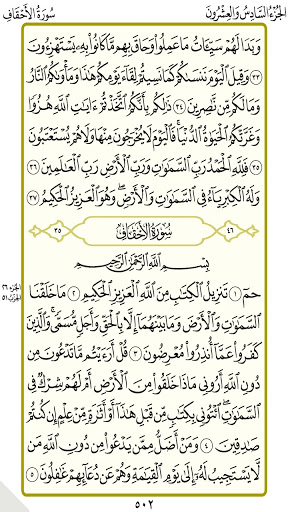 الجُزْءُ السَّادِسُ وَالعِشْرُونَ
سُورَةُ الأَحْقَافِ
وَبَدَا لَهُمْ سَيِّئَاتُ مَا عَمِلُوا وَحَاقَ بِهِم مَّا كَانُوا بِهِ يَسْتَهْزِءُونَ
٣٣ وَقِيلَ الْيَوْمَ نَنسَاكُمْ كَمَا نَسِيتُمْ لِقَاءَ يَوْمِكُمْ هَذَا وَمَأْوَاكُمُ النَّارُ
وَمَا لَكُم مِّن نَّاصِرِينَ ٣٤ ذَلِكُم بِأَنَّكُمُ اتَّخَذْتُمْ آيَاتِ اللَّهِ هُزُوًا
وَغَرَّتْكُمُ الْحَيَاةُ الدُّنْيَا ۚ فَالْيَوْمَ لَا يُخْرَجُونَ مِنْهَا وَلَا هُمْ يُسْتَعْتَبُونَ
٣٥ فَلِلَّهِ الْحَمْدُ رَبِّ السَّمَاوَاتِ وَرَبِّ الْأَرْضِ رَبِّ الْعَالَمِينَ ٣٦
وَلَهُ الْكِبْرِيَاءُ فِي السَّمَاوَاتِ وَالْأَرْضِ ۖ وَهُوَ الْعَزِيزُ الْحَكِيمُ ٣٧
٤٦ سُورَةُ الأَحْقَافِ ٣٥
بِسْمِ اللَّهِ الرَّحْمَنِ الرَّحِيمِ
حم ١ تَنزِيلُ الْكِتَابِ مِنَ اللَّهِ الْعَزِيزِ الْحَكِيمِ ٢ مَا خَلَقْنَا
الجزء ٢٦
الحزب ٥١
السَّمَاوَاتِ وَالْأَرْضَ وَمَا بَيْنَهُمَا إِلَّا بِالْحَقِّ وَأَجَلٍ مُّسَمًّى ۚ وَالَّذِينَ
كَفَرُوا عَمَّا أُنذِرُوا مُعْرِضُونَ ٣ قُلْ أَرَأَيْتُم مَّا تَدْعُونَ مِن
دُونِ اللَّهِ أَرُونِي مَاذَا خَلَقُوا مِنَ الْأَرْضِ أَمْ لَهُمْ شِرْكٌ فِي
السَّمَاوَاتِ ۖ ائْتُونِي بِكِتَابٍ مِّن قَبْلِ هَذَا أَوْ أَثَارَةٍ مِّنْ عِلْمٍ إِن كُنتُمْ
صَادِقِينَ ٤ وَمَنْ أَضَلُّ مِمَّن يَدْعُو مِن دُونِ اللَّهِ مَن
لَّا يَسْتَجِيبُ لَهُ إِلَى يَوْمِ الْقِيَامَةِ وَهُمْ عَن دُعَائِهِمْ غَافِلُونَ ٥
٥٠٢